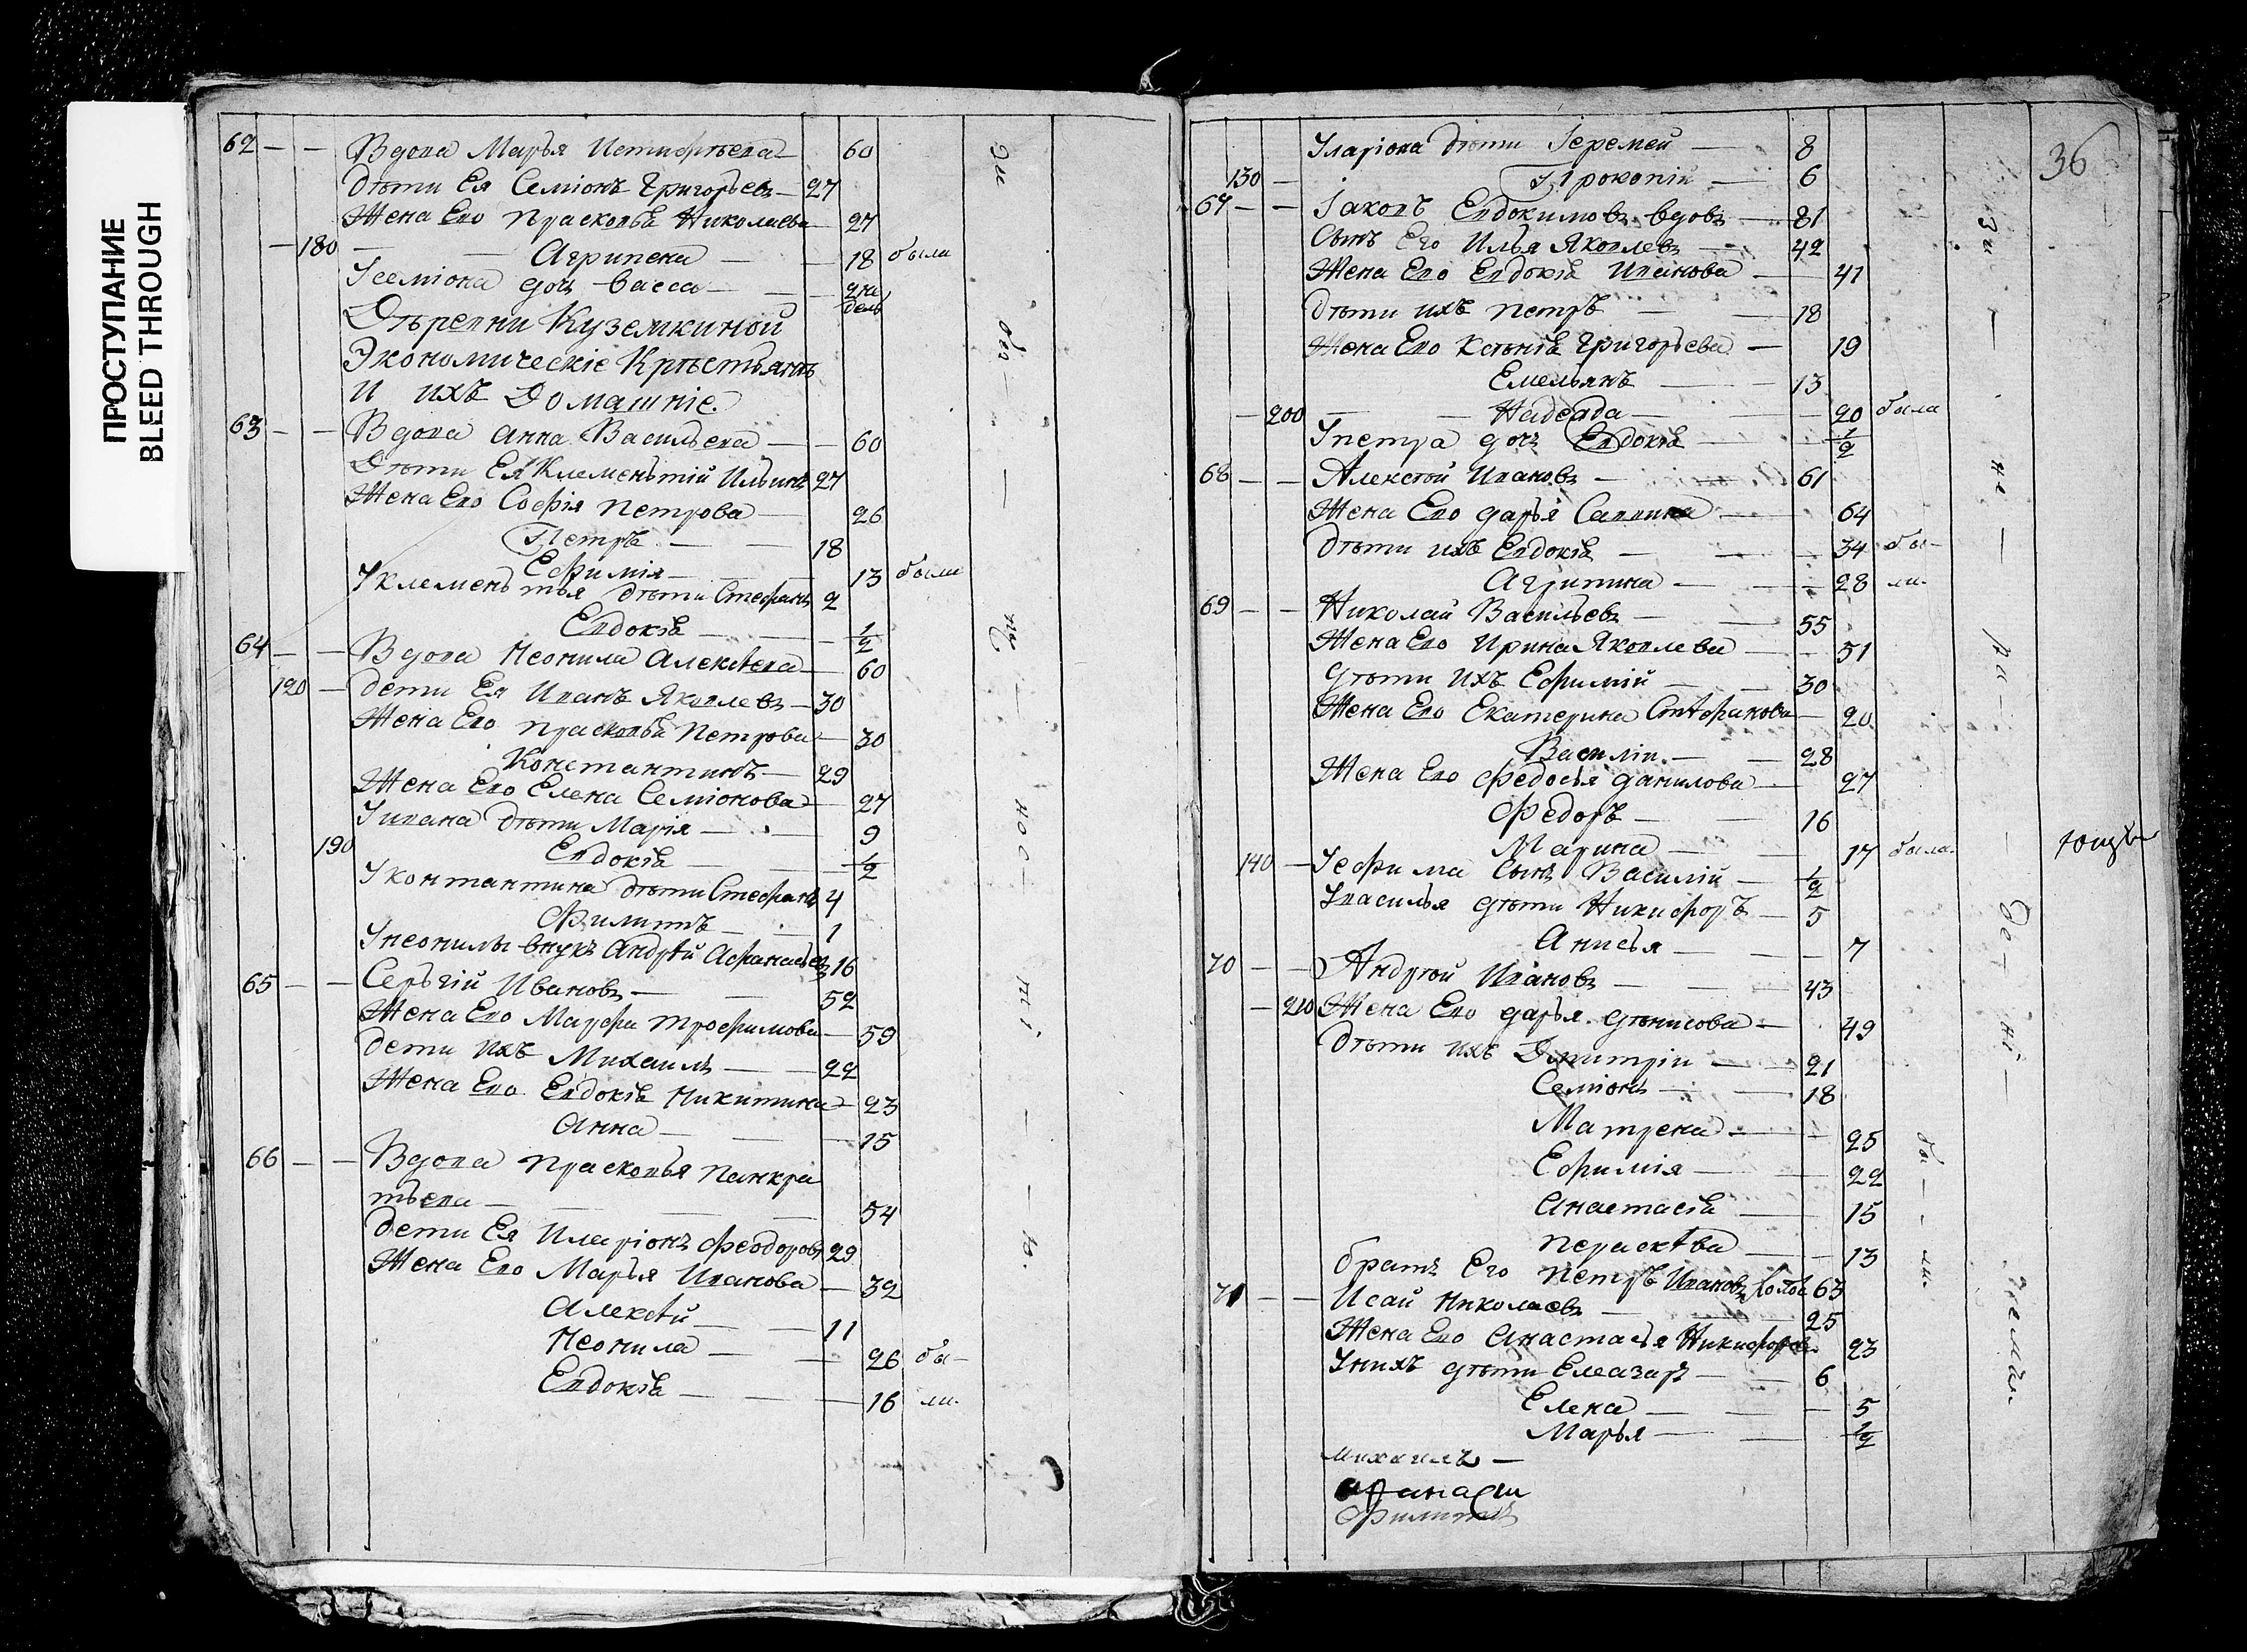 ПРОСТУПАНИЕ
BLEED THROUGH
62 — — Вдова Марья — 60
Дѣти Ея Семіонъ Григорьевъ — 27
Жена Ево Прасковья Николаева — 27
— 180 — — Агрипена — — 18 была
У семіона дочь Васса — — 2 не
дель
Дѣревни Куземкиной
Экономическіе Крѣстьянѣ
И ихъ Домашніе.
63 — — Вдова Анна Васильева — — 60
Дѣти Ея Клеменьтій Ильинъ 27
Жена Ево Софія Петрова — 26
Петръ — — 18
Ефимія — — 13 были
У клеменьтья дѣти Стефанъ 2
Евдокія — — 1/2
64 — — Вдова Неонила Алексѣева — 60
120 — Дети Ея Иванъ Яковлевъ — 30
Жена Ево Прасковья Петрова — 30
Константинъ — 29
Жена Ево Елена Семіонова — 27
У ивана дѣти Марія — — 9
190 Евдокія — — 1/2
У контантина дѣти Стефанъ 4
Филиппъ — — 1
У неонилы внукъ Андрѣй Афанасьевъ 16
65 — — Серьгій Ивановъ — — 52
Жена Ево Марфа Трофимова — 59
Дети ихъ Михаилъ — — 22
Жена Ево Евдокія Никитина — 23
Анна — — — 15
66 — — Вдова Прасковья Панкра
тьева — — — 54
Дети Ея Иларіонъ Феодоровъ 29
Жена Ево Марья Иванова — 32
Алексѣй — — 11
Неонила — — 26 бы —
Евдокія — — 16 ли.
36
Иларіона дѣти Іеремей — 8
130 — Прокопій — 6
67 — — Іаковъ Евдокимовъ вдовъ — 81
Сынъ Его Илья Яковлевъ — 42
Жена Ево Евдокія Иванова — 41
Дѣти ихъ Петръ — — 18
Жена Ево Ксѣнія Григорьева — 19
Емельянъ — — 13
— 200 — — Надежда — — 20 была
У петра дочь Евдокія — 1/2
68 — — Алексѣй Ивановъ — 61
Жена Ево дарья Саввина — 64
Дѣти ихъ Евдокія — — 34 бы —
Агрипина — — 28 ли.
69 — — Николай Васильевъ — — 55
Жена Ево Ирина Яковлева — — 51
дѣти ихъ Ефимій — — 30
Жена Ево Екатерина Стѣфанова — 20
Василій — — 28
Жена Ево Федосья данилова — 27
Федоръ — — 16
Марина — 17 была.
140 — У ефима сынъ Василій — 1/2
У василья дѣти Никифоръ — 5
Анисья — — — 7
70 — — Андрѣй Ивановъ — — 43
— 210 Жена Ево дарья дѣнисова — 49
Дѣти ихъ Димитріи — — 21
Семіонъ — — 18
Матрена — — 25 бы —
Ефимія — — 22
Анастасія — — 15
Пераскѣва — — 13 ли.
братъ Его Петръ Ивановъ 63
71 — — Исай Николаевъ — 25
Жена Ево Анастасья Никифорова 23
У нихъ дѣти Елеазаръ — — 6
Елена — — — 5
Марья — — 1/2
Михаилъ —
Филиппъ